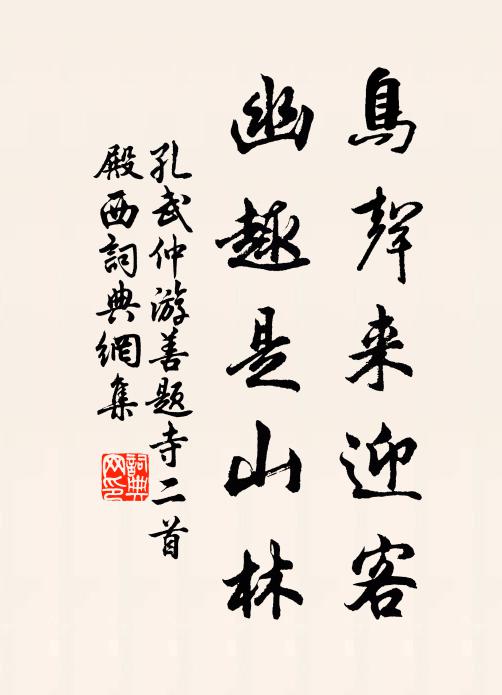 鳥聲来迎客
幽趣是山林
孔武仲游善題寺二首
殿西詞典網集
詞典网印